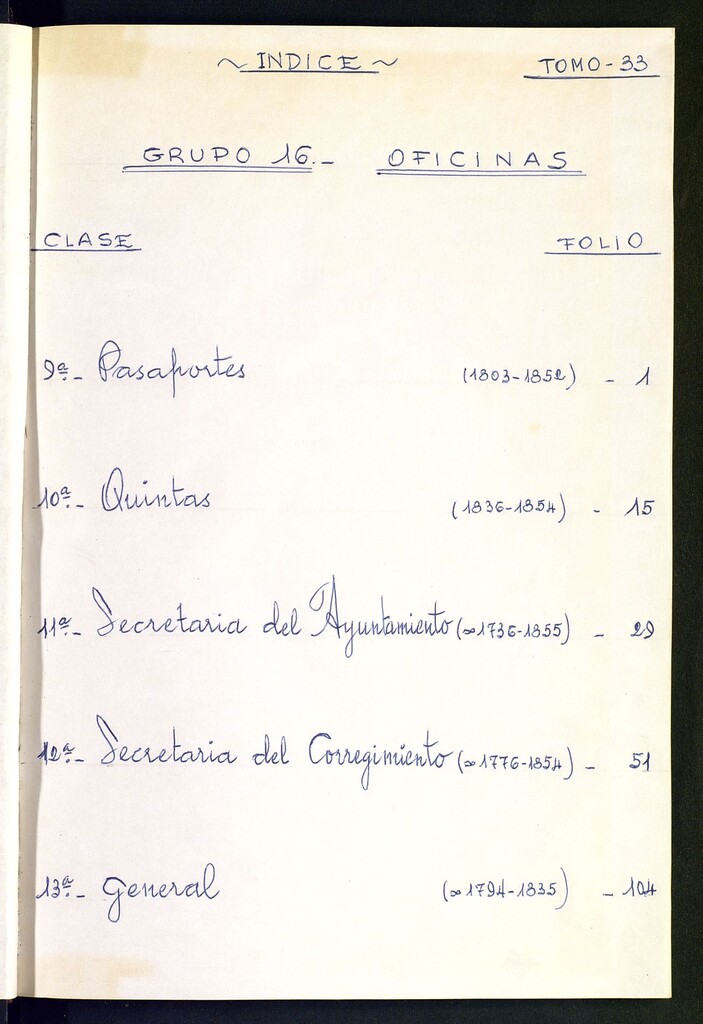 ~ INDICE ~ TOMO-33
GRUPO 16.- OFICINAS
CLASE FOLIO
9ª.- Pasaportes (1803-1852) - 1
10ª.- Quintas (1836-1854) - 15
11ª.- Secretaria del Ayuntamiento (∞1736-1855) - 29
12ª.- Secretaria del Corregimiento (∞1776-1854) - 51
13ª.- General (∞1794-1835) - 104